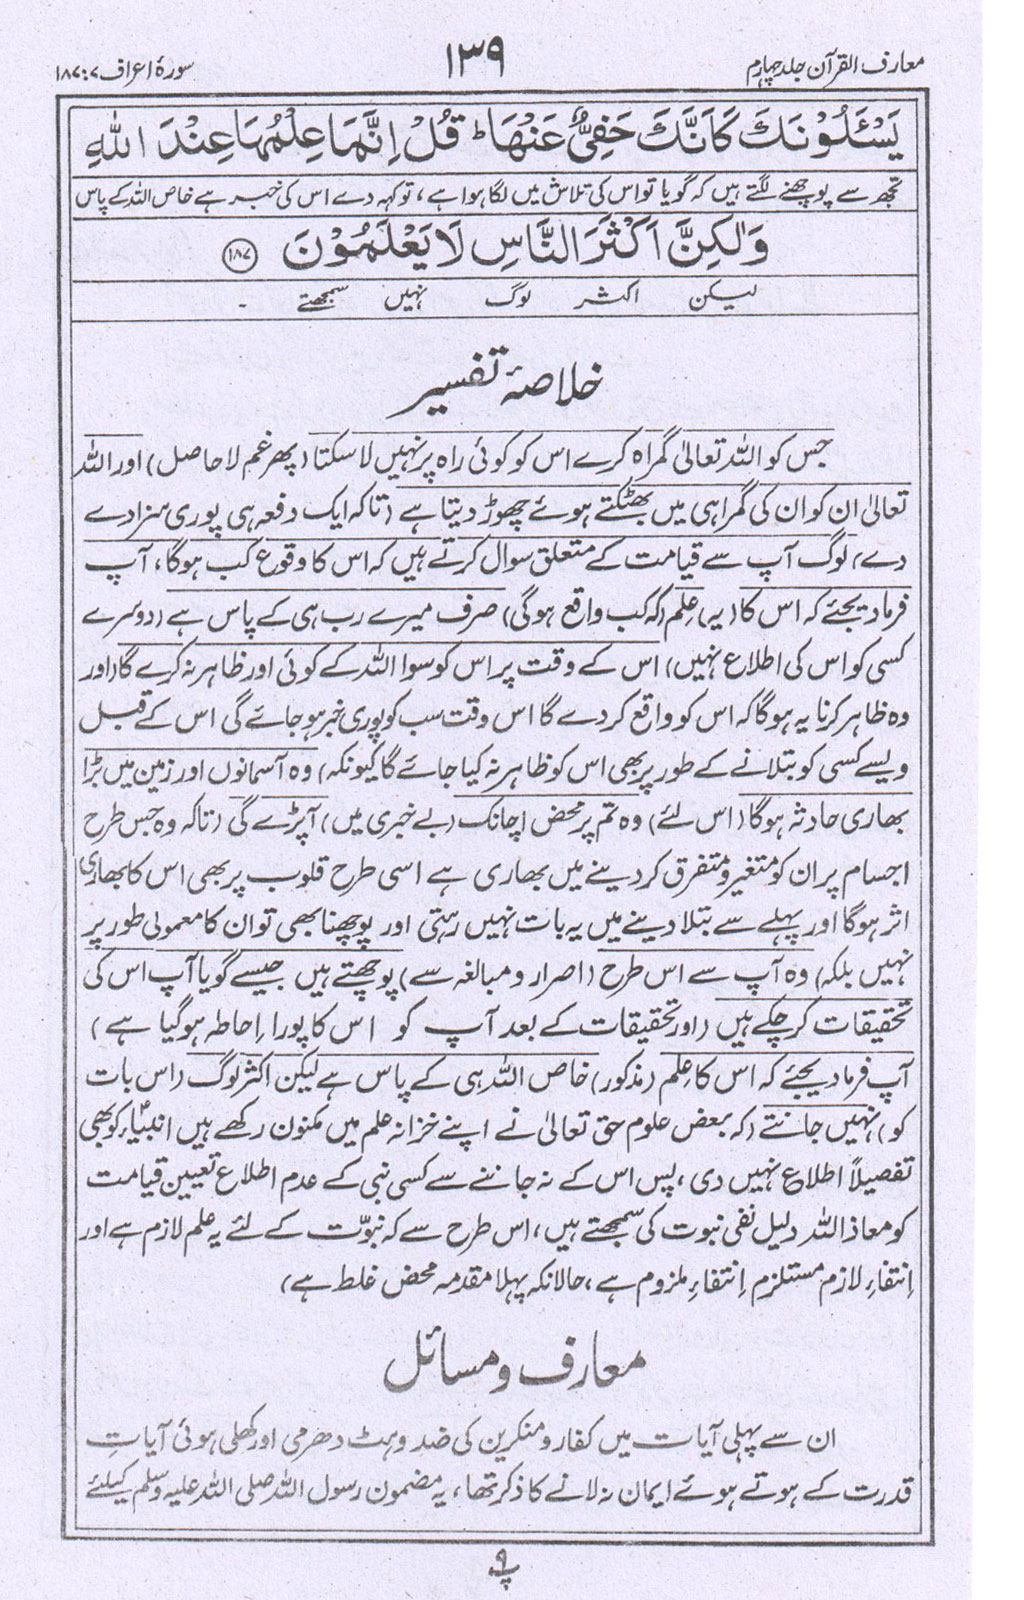 معارف القرآن جلد چہارم
۱۳۹
سورۂ اعراف ۷ : ۱۸۷
يَسْـَٔلُوْنَكَ كَاَنَّكَ حَفِيٌّ عَنْهَا ؕ قُلْ اِنَّمَا عِلْمُهَا عِنْدَ اللّٰهِ
تجھ سے پوچھنے لگتے ہیں کہ گویا تو اس کی تلاش میں لگا ہوا ہے ، تو کہہ دے اس کی خبر ہے خاص اللہ کے پاس
وَلٰكِنَّ اَكْثَرَ النَّاسِ لَا يَعْلَمُوْنَ ﴿۱۸۷﴾
لیکن اکثر لوگ نہیں سمجھتے ۔
خلاصۂ تفسیر
جس کو اللہ تعالیٰ گمراہ کرے اس کو کوئی راہ پر نہیں لا سکتا (پھر غم لا حاصل) اور اللہ
تعالیٰ ان کو ان کی گمراہی میں بھٹکتے ہوئے چھوڑ دیتا ہے (تاکہ ایک دفعہ ہی پوری سزا دے
دے) لوگ آپ سے قیامت کے متعلق سوال کرتے ہیں کہ اس کا وقوع کب ہوگا ، آپ
فرما دیجئے کہ اس کا (یہ) علم (کہ کب واقع ہوگی) صرف میرے رب ہی کے پاس ہے (دوسرے
کسی کو اس کی اطلاع نہیں) اس کے وقت پر اس کو سوا اللہ کے کوئی اور ظاہر نہ کرے گا (اور
وہ ظاہر کرنا یہ ہوگا کہ اس کو واقع کر دے گا اس وقت سب کو پوری خبر ہو جائے گی اس کے قبل
ویسے کسی کو بتلانے کے طور پر بھی اس کو ظاہر نہ کیا جائے گا کیونکہ) وہ آسمانوں اور زمین میں بڑا
بھاری حادثہ ہوگا (اس لئے) وہ تم پر محض اچانک (بے خبری میں) آپڑے گی (تاکہ وہ جس طرح
اجسام پر ان کو متغیر و متفرق کر دینے میں بھاری ہے اسی طرح قلوب پر بھی اس کا بھاری
اثر ہوگا اور پہلے سے بتلا دینے میں یہ بات نہیں رہتی اور پوچھنا بھی تو ان کا معمولی طور پر
نہیں بلکہ) وہ آپ سے اس طرح (اصرار و مبالغہ سے) پوچھتے ہیں جیسے گویا آپ اس کی
تحقیقات کر چکے ہیں (اور تحقیقات کے بعد آپ کو اس کا پورا اِحاطہ ہو گیا ہے)
آپ فرما دیجئے کہ اس کا عِلم (مذکور) خاص اللہ ہی کے پاس ہے لیکن اکثر لوگ (اس بات
کو) نہیں جانتے (کہ بعض علوم حق تعالیٰ نے اپنے خزانہ علم میں مکنون رکھے ہیں انبیاءؑ کو بھی
تفصیلاً اطلاع نہیں دی ، پس اس کے نہ جاننے سے کسی نبی کے عدم اطلاع تعیین قیامت
کو معاذ اللہ دلیل نفی نبوت کی سمجھتے ہیں ، اس طرح سے کہ نبوّت کے لئے یہ علم لازم ہے اور
اِنتفاءِ لازم مستلزم اِنتفاءِ ملزوم ہے ، حالانکہ پہلا مقدمہ محض غلط ہے)
معارف و مسائل
ان سے پہلی آیات میں کفار و منکرین کی ضد و ہٹ دھرمی اور کھلی ہوئی آیاتِ
قدرت کے ہوتے ہوئے ایمان نہ لانے کا ذکر تھا ، یہ مضمون رسول اللہ صلی اللہ علیہ وسلم کیلئے